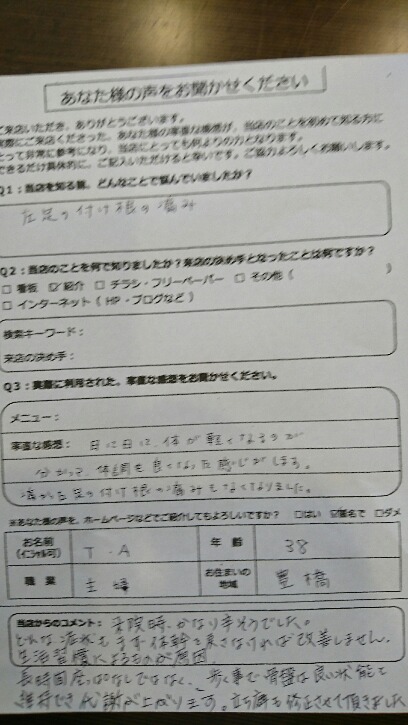 あなた様の声をお聞かせください
ご来店いただき、ありがとうございます。
実際にご来店くださった、あなた様の率直な感想が、当店のことを初めて知る方に
とって非常に参考になり、当店にとっても何よりの力となります。
できるだけ具体的に、ご記入いただけると幸いです。ご協力よろしくお願いします。
Q1:当店を知る前、どんなことで悩んでいましたか?
左足の付け根の痛み
Q2:当店のことを何で知りましたか?来店の決め手となったことは何ですか?
□ 看板 ☑ 紹介 □ チラシ・フリーペーパー □ その他 ( )
□ インターネット ( HP・ブログなど )
検索キーワード:
来店の決め手:
Q3:実際に利用された、率直な感想をお聞かせください。
メニュー:
率直な感想: 日に日に、体が軽くなるのが
分かって、体調も良くなった感じがします。
左足の付け根の痛みもなくなりました。
※あなた様の声を、ホームページなどでご紹介してもよろしいですか? □はい ☑匿名で □ダメ
お名前 (イニシャル可) T.A 年齢 38
職業 主婦 お住まいの地域 豊橋
当店からのコメント: 来院時、かなり辛そうでした。
どんな症状もまず体幹を良さなければ改善しません。
生活習慣によるものが原因
長時間座りぱなしではなく、歩く事で骨盤は良い状態で
維持でき代謝が上がります。立ち癖も修正させて頂きました